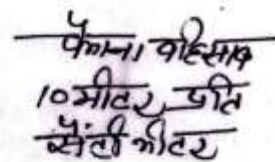 पैमाना वहिसाब
10 मीटर प्रति
सेंटीमीटर